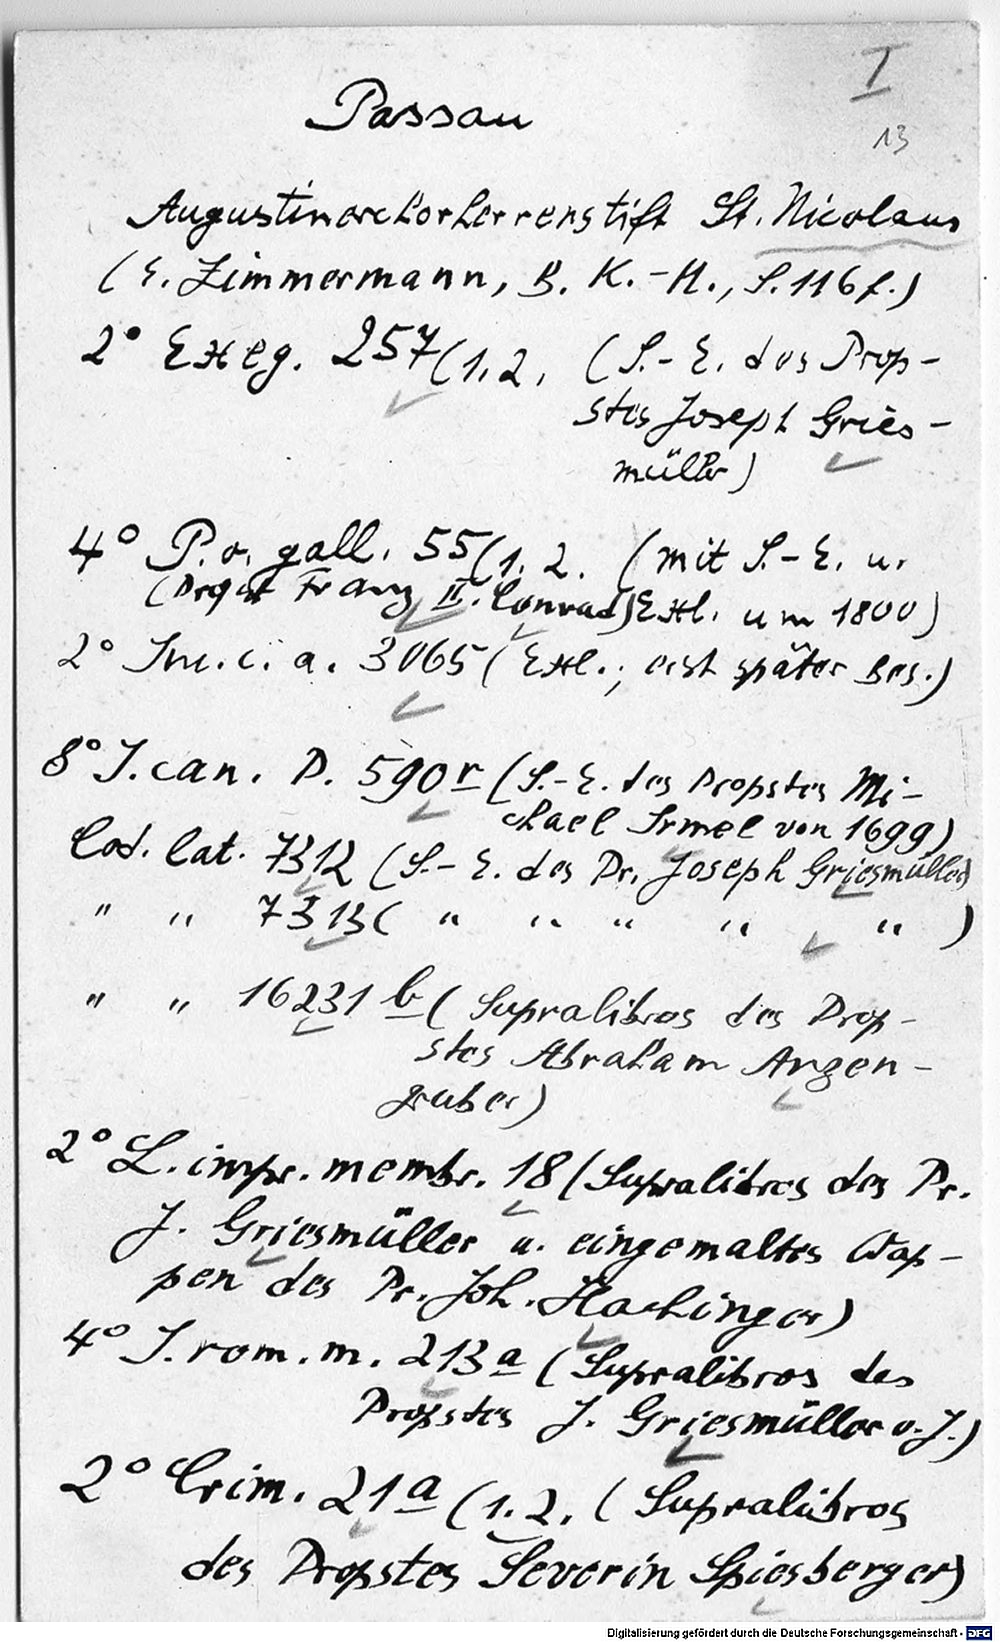 I
Passau
13
Augustinerchorherrenstift St. Nicolaus
(E. Zimmermann, B. K.-H., S. 116 f.)
2° Exeg. 257(1.2. (S.-E. des Prop-
stes Joseph Gries-
müller)
4° P.o. gall. 55(1.2. (mit S.-E. u.
(Propst Franz II. Conrad) Exl. um 1800)
2° Inc. c. a. 3065 (Exl.; erst später Bes.)
8° J. can. P. 590r (S.-E. des Propstes Mi-
chael Irmel von 1699)
Cod. lat. 7312 (S.-E. des Pr. Joseph Griesmüller)
" " 7313( " " " " " )
" " 16231 b (Supralibros des Prop-
stes Abraham Angen-
gruber)
2° L. impr. membr. 18 (Supralibros des Pr.
J. Griesmüller u. eingemaltes Wap-
pen des Pr. Joh. Hachinger)
4° J. rom. m. 213a (Supralibros des
Propstes J. Griesmüller o. J.)
2° Crim. 21a (1.2. (Supralibros
des Propstes Severin Spiesberger)
Digitalisierung gefördert durch die Deutsche Forschungsgemeinschaft - DFG